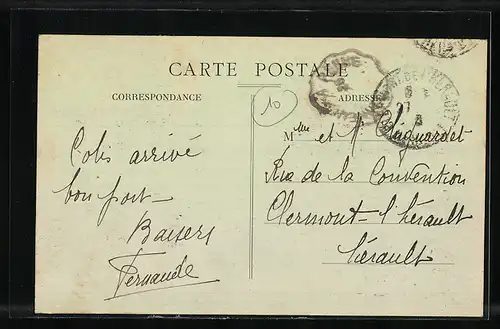 CARTE POSTALE
CORRESPONDANCE
ADRESSE
10
Colis arrivé
bon port -
Baisers
Fernande
Mme et M. Laguardet
Rue de la Convention
Clermont-l'hérault
hérault